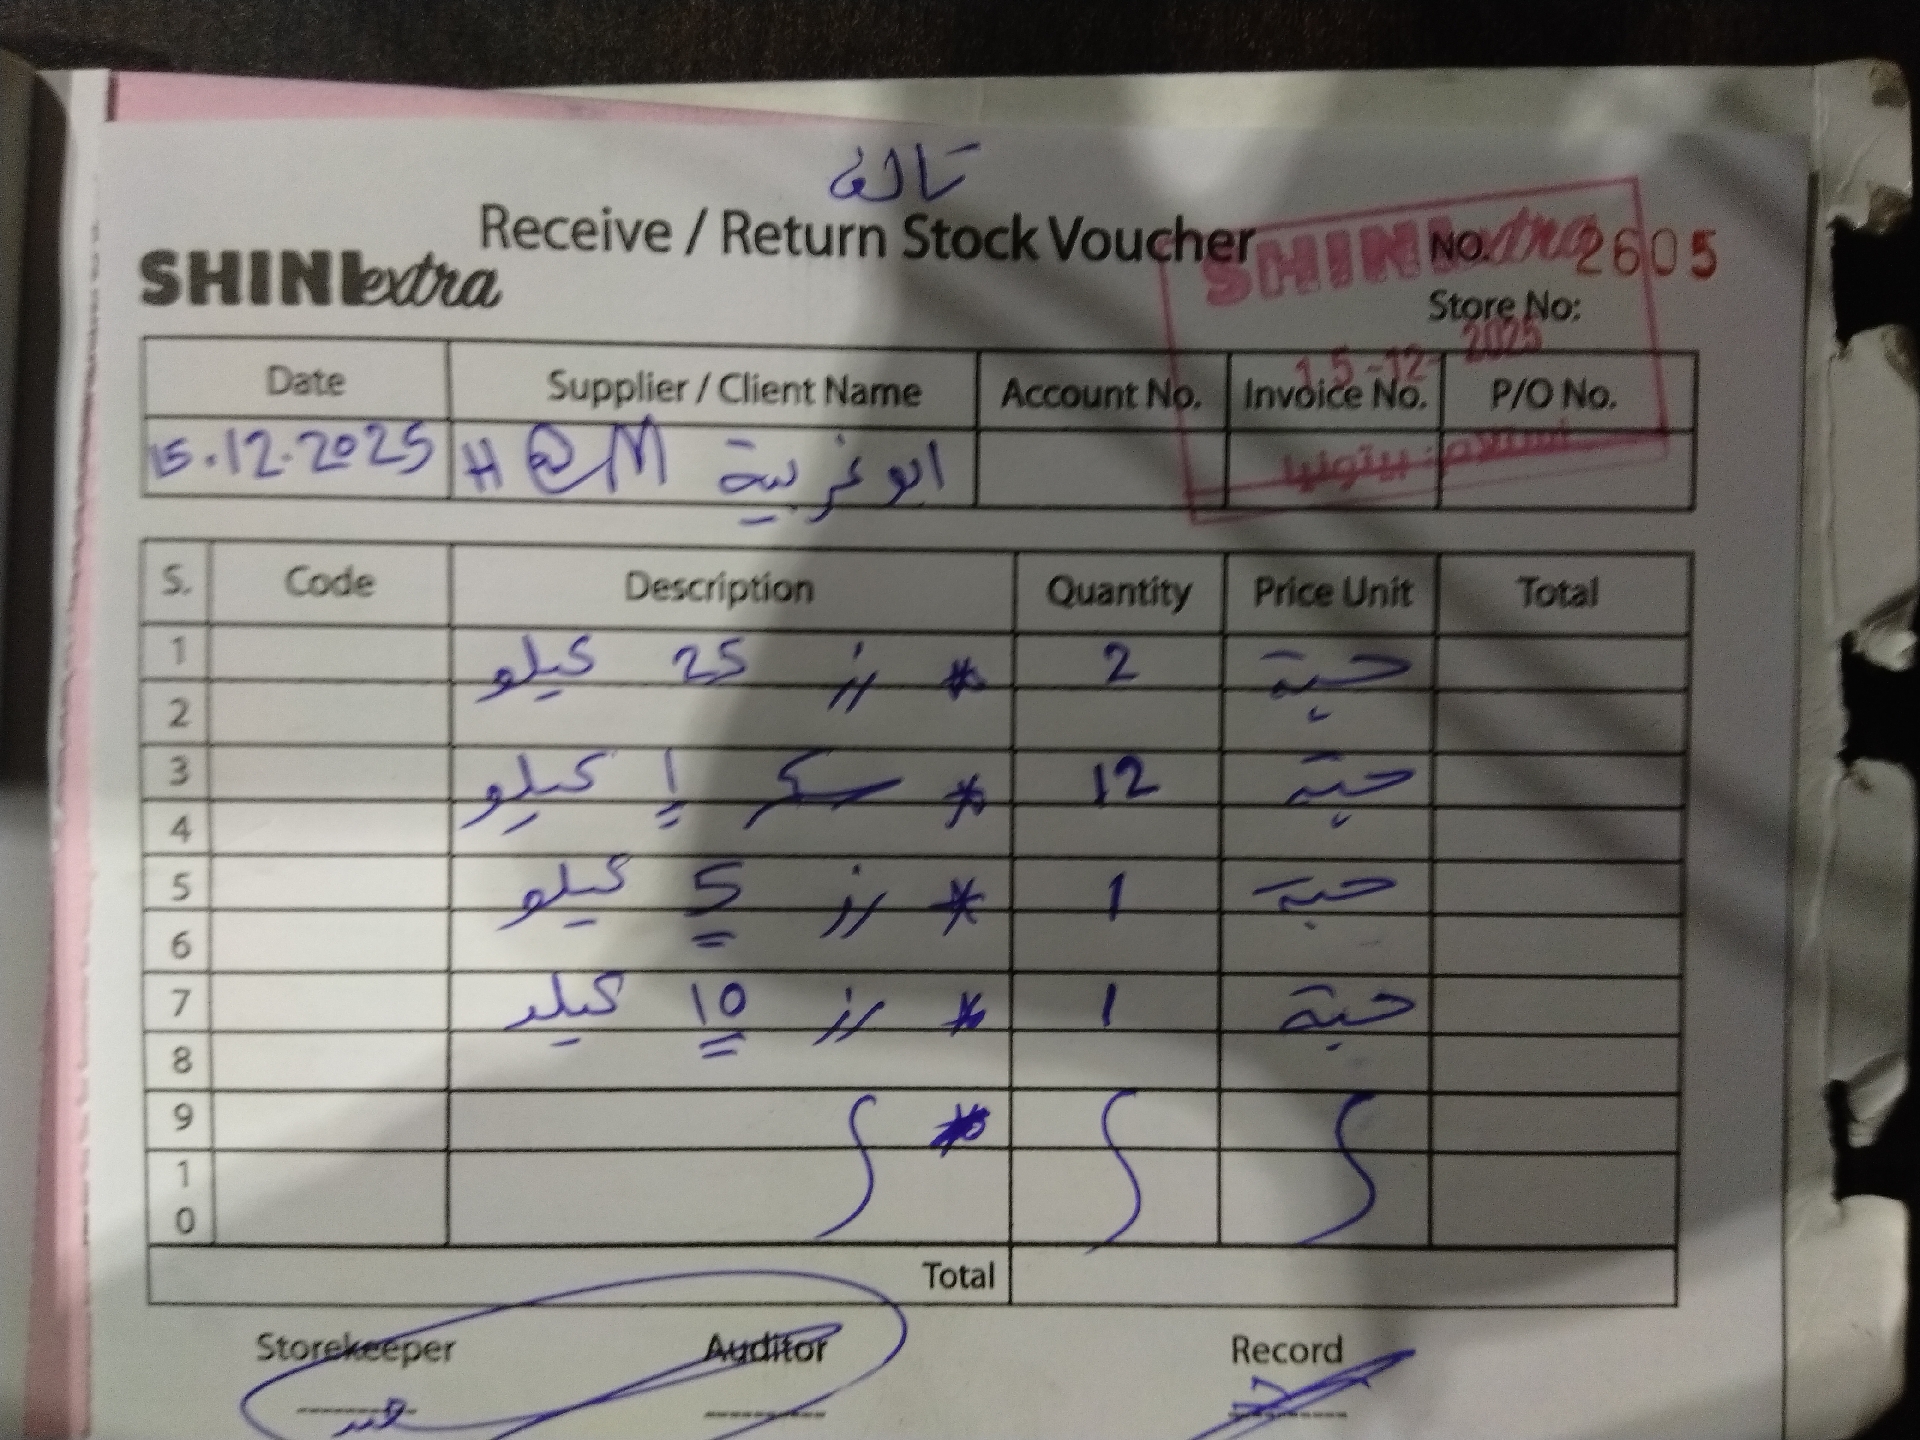 تالف
Receive / Return Stock Voucher
SHINI extra
SHINI extra
NO. 2605
Store No:
15-12-2025
استلام: بيتونيا
Date Supplier / Client Name Account No. Invoice No. P/O No.
15.12.2025 H@M ابو غربية
S. Code Description Quantity Price Unit Total
1 * رز 25 كيلو 2 حبة
2
3 * سكر 1 كيلو 12 حبة
4
5 * رز 5 كيلو 1 حبة
6
7 * رز 10 كيلو 1 حبة
8
9 *
10
Total
Storekeeper Auditor Record